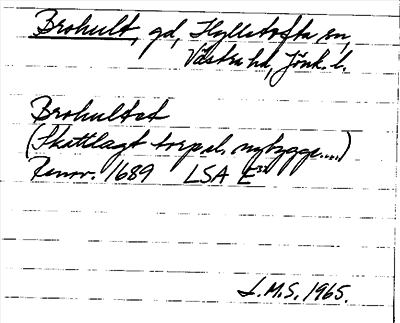 Brohult, gd, Hylletofta sn,
Västra hd, Jönk. l.
Brohultet
(Skattlagt torp el. nybygge....)
Renov. 1689 LSA E
J.M.S. 1965.